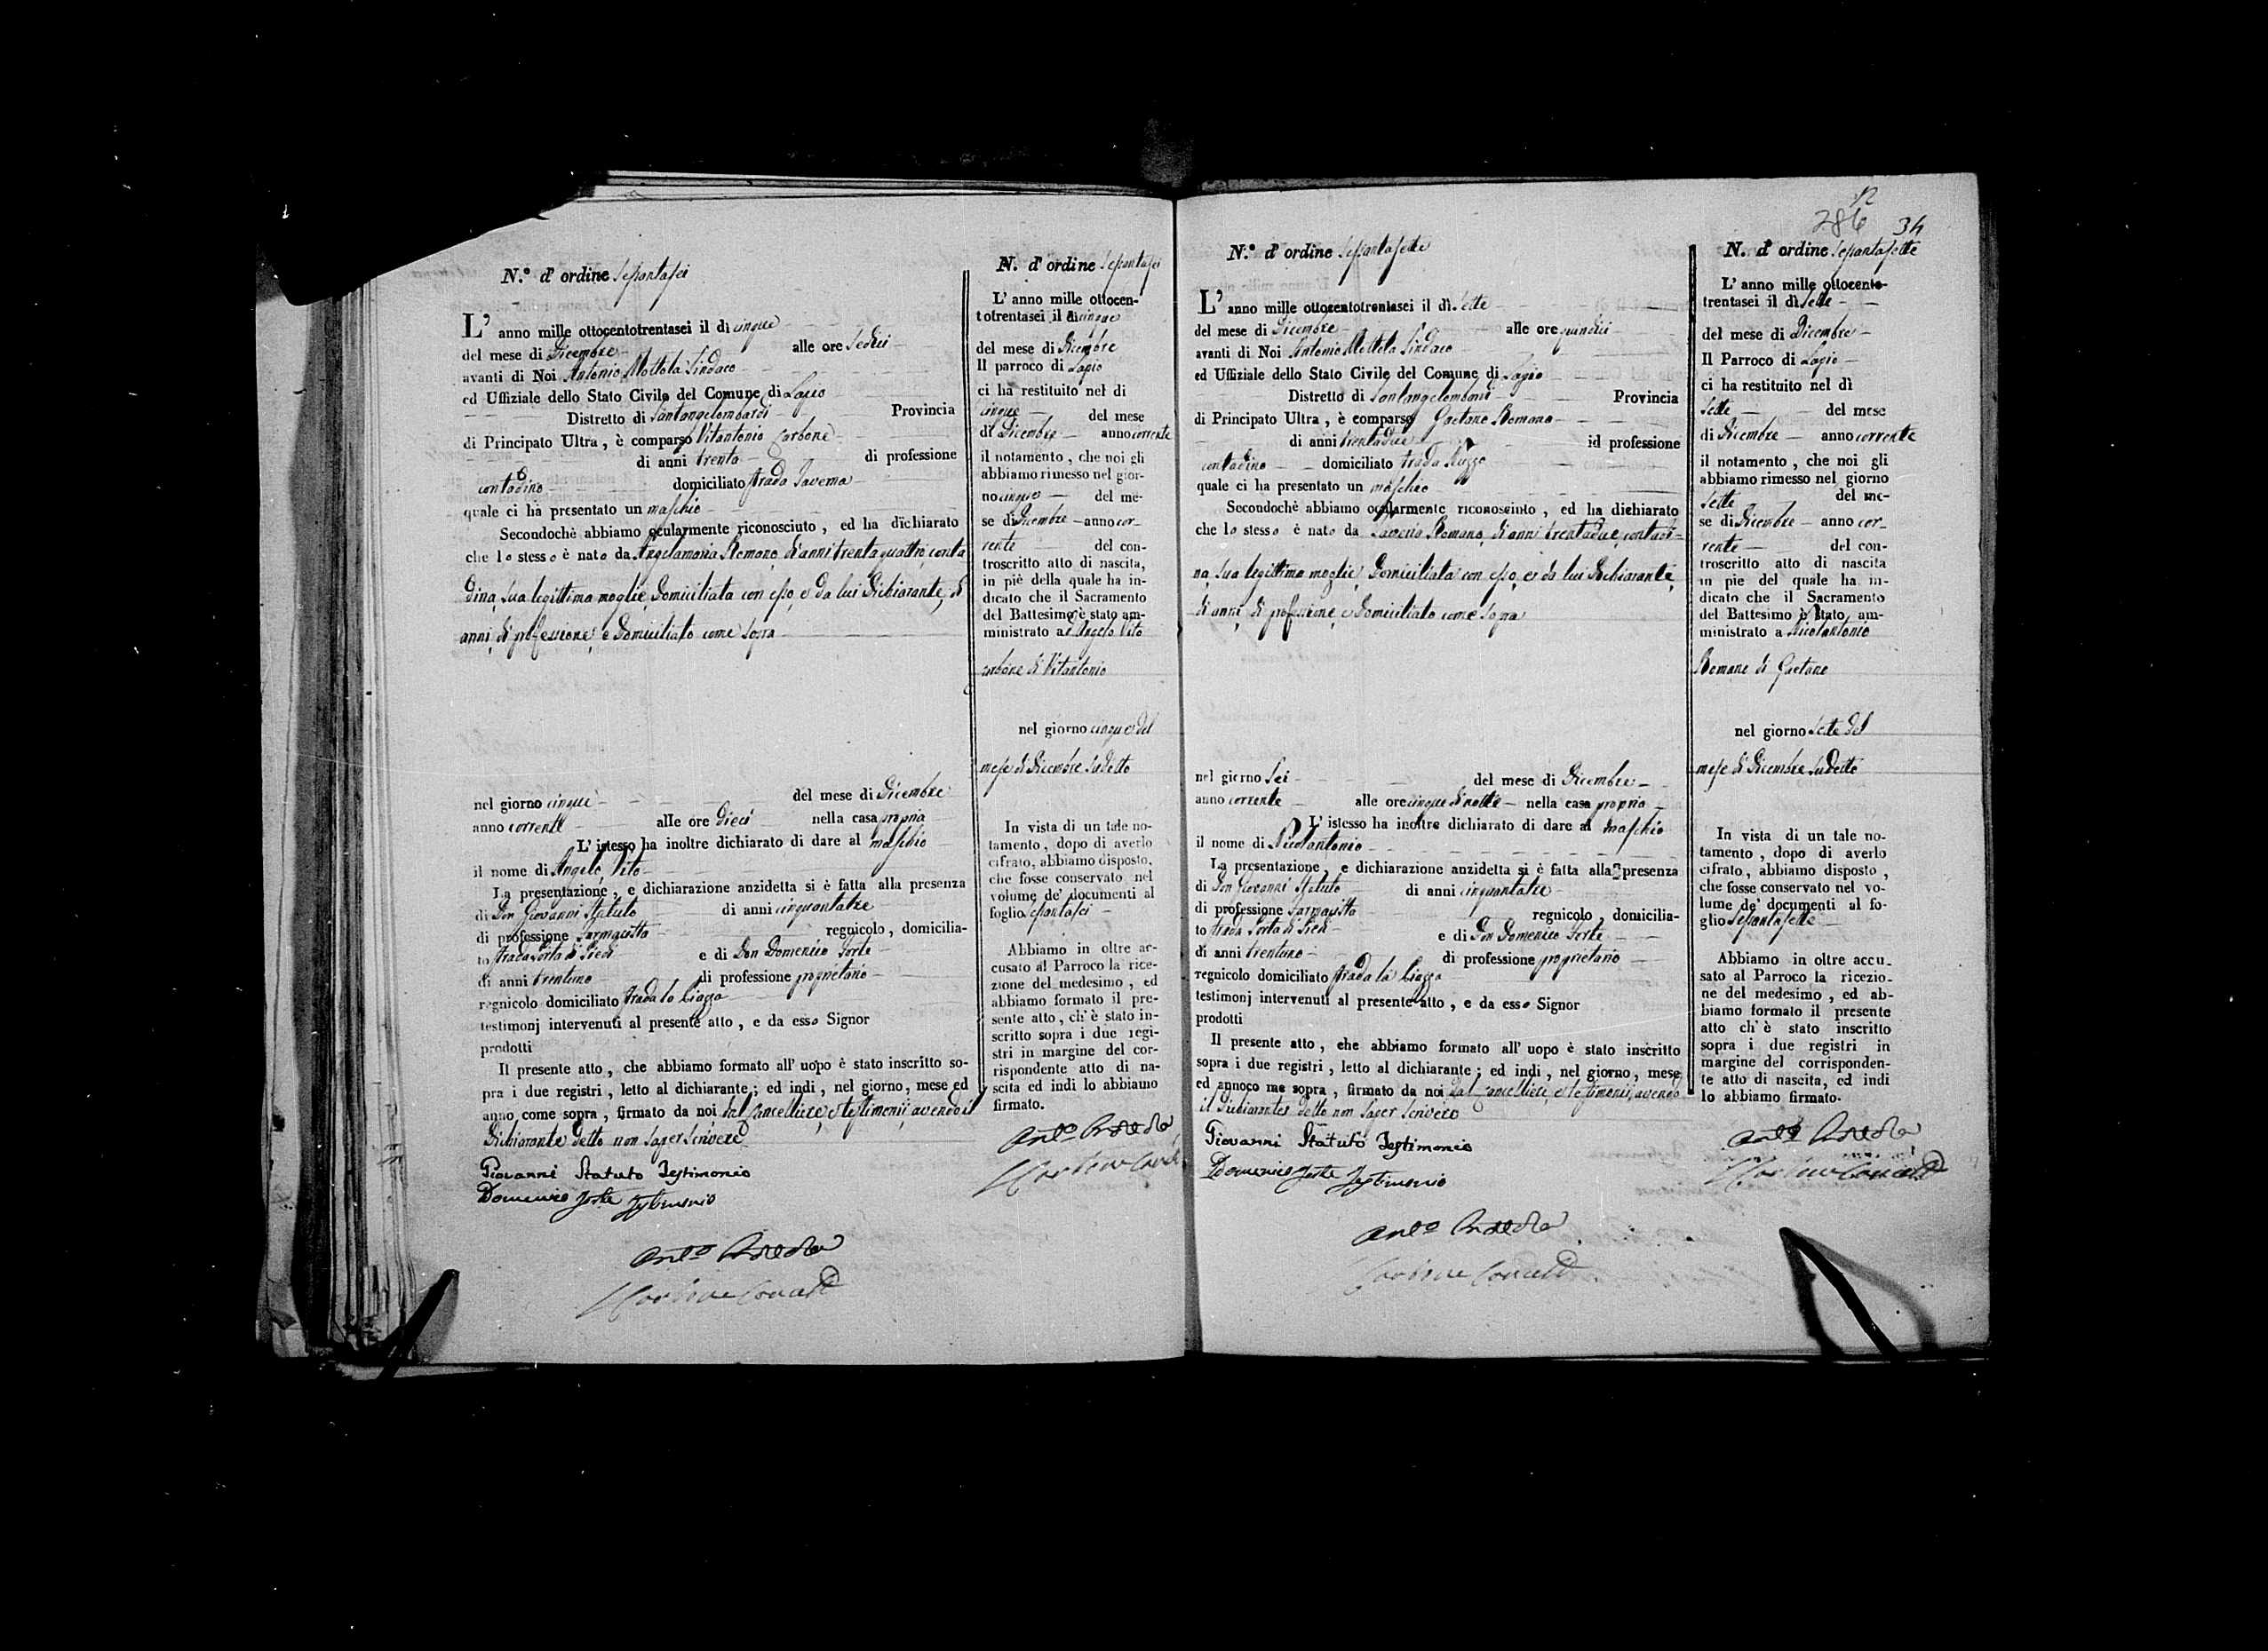 N.º d'ordine Sessantasei
L' anno mille ottocentotrentasei il dì cinque
del mese di Dicembre alle ore Sedici
avanti di Noi Antonio Mottola Sindaco
ed Uffiziale dello Stato Civile del Comune di Lapio
Distretto di Santangelombardi Provincia
di Principato Ultra, è comparso Vitantonio Carbone
di anni trenta di professione
contadino domiciliato strada Taverna
quale ci ha presentato un maschio
Secondochè abbiamo ocularmente riconosciuto, ed ha dichiarato
che lo stesso è nato da Angelamaria Romano, di anni trentaquattro, conta
dina, sua legittima moglie, domiciliata con esso, e da lui dichiarante, di
anni, di professione, e domiciliato come sopra
nel giorno cinque del mese di Dicembre
anno corrente alle ore dieci nella casa propria
L' istesso ha inoltre dichiarato di dare al maschio
il nome di Angelo, Vito
La presentazione, e dichiarazione anzidetta si è fatta alla presenza
di Don Giovanni Statuto di anni cinquantatre
di professione Farmacista regnicolo, domicilia-
to strada Porta di Piedi e di Don Domenico Forte
di anni trentuno di professione proprietario
regnicolo domiciliato strada la Piazza
testimonj intervenuti al presente atto, e da esso Signor
prodotti
Il presente atto, che abbiamo formato all' uopo è stato inscritto so-
pra i due registri, letto al dichiarante; ed indi, nel giorno, mese ed
anno come sopra, firmato da noi dal Cancelliere, e testimonii avendo il
dichiarante detto non saper scrivere
Giovanni Statuto Testimonio
Domenico Forte Testimonio
N. d' ordine Sessantasei
L' anno mille ottocen-
totrentasei il dì cinque
del mese di Dicembre
Il parroco di Lapio
ci ha restituito nel dì
cinque del mese
di Dicembre anno corrente
il notamento, che noi gli
abbiamo rimesso nel gior-
no cinque del me-
se di Dicembre anno cor-
rente del con-
troscritto atto di nascita,
in piè della quale ha in-
dicato che il Sacramento
del Battesimo è stato am-
ministrato a Angelo Vito
Carbone di Vitantonio
nel giorno cinque del
mese di Dicembre sudetto
In vista di un tale no-
tamento, dopo di averlo
cifrato, abbiamo disposto,
che fosse conservato nel
volume de' documenti al
foglio sessantasei
Abbiamo in oltre ac-
cusato al Parroco la rice-
zione del medesimo, ed
abbiamo formato il pre-
sente atto, ch' è stato in-
scritto sopra i due regi-
stri in margine del cor-
rispondente atto di na-
scita ed indi lo abbiamo
firmato.
286 34
N.º d' ordine Sessantasette
L' anno mille ottocentotrentasei il dì Sette
del mese di Dicembre alle ore quindici
avanti di Noi Antonio Mottola Sindaco
ed Uffiziale dello Stato Civile del Comune di Lapio
Distretto di Santangelombardi Provincia
di Principato Ultra, è comparso Gaetano Romano
di anni trentadue id professione
contadino domiciliato strada
quale ci ha presentato un maschio
Secondochè abbiamo ocularmente riconosciuto, ed ha dichiarato
che lo stesso è nato da Saveria Romano, di anni trentadue, contadi-
na, sua legittima moglie, domiciliata con esso, e da lui dichiarante,
di anni, di professione, e domiciliato come sopra
nel giorno Sei del mese di Dicembre
anno corrente alle ore cinque di notte nella casa propria
L' istesso ha inoltre dichiarato di dare al maschio
il nome di Nicolantonio
La presentazione, e dichiarazione anzidetta si è fatta alla presenza
di Don Giovanni Statuto di anni cinquantatre
di professione Farmacista regnicolo, domicilia-
to strada Porta di Piedi e di Don Domenico Forte
di anni trentuno di professione proprietario
regnicolo domiciliato strada la Piazza
testimonj intervenuti al presente atto, e da esso Signor
prodotti
Il presente atto, che abbiamo formato all' uopo è stato inscritto
sopra i due registri, letto al dichiarante; ed indi, nel giorno, mese
ed annoco me sopra, firmato da noi dal Cancelliere, e testimonii, avendo
il dichiarante detto non saper scrivere
Giovanni Statuto Testimonio
Domenico Forte Testimonio
N. d' ordine Sessantasette
L' anno mille ottocento-
trentasei il dì Sette
del mese di Dicembre
Il Parroco di Lapio
ci ha restituito nel dì
Sette del mese
di Dicembre anno corrente
il notamento, che noi gli
abbiamo rimesso nel giorno
Sette del me-
se di Dicembre anno cor-
rente del con-
troscritto atto di nascita
in pie del quale ha in-
dicato che il Sacramento
del Battesimo è stato am-
ministrato a Nicolantonio
Romano di Gaetano
nel giorno Sette del
mese di Dicembre sudetto
In vista di un tale no-
tamento, dopo di averlo
cifrato, abbiamo disposto,
che fosse conservato nel vo-
lume de' documenti al fo-
glio Sessantasette
Abbiamo in oltre accu-
sato al Parroco la ricezio-
ne del medesimo, ed ab-
biamo formato il presente
atto ch' è stato inscritto
sopra i due registri in
margine del corrisponden-
te atto di nascita, ed indi
lo abbiamo firmato.